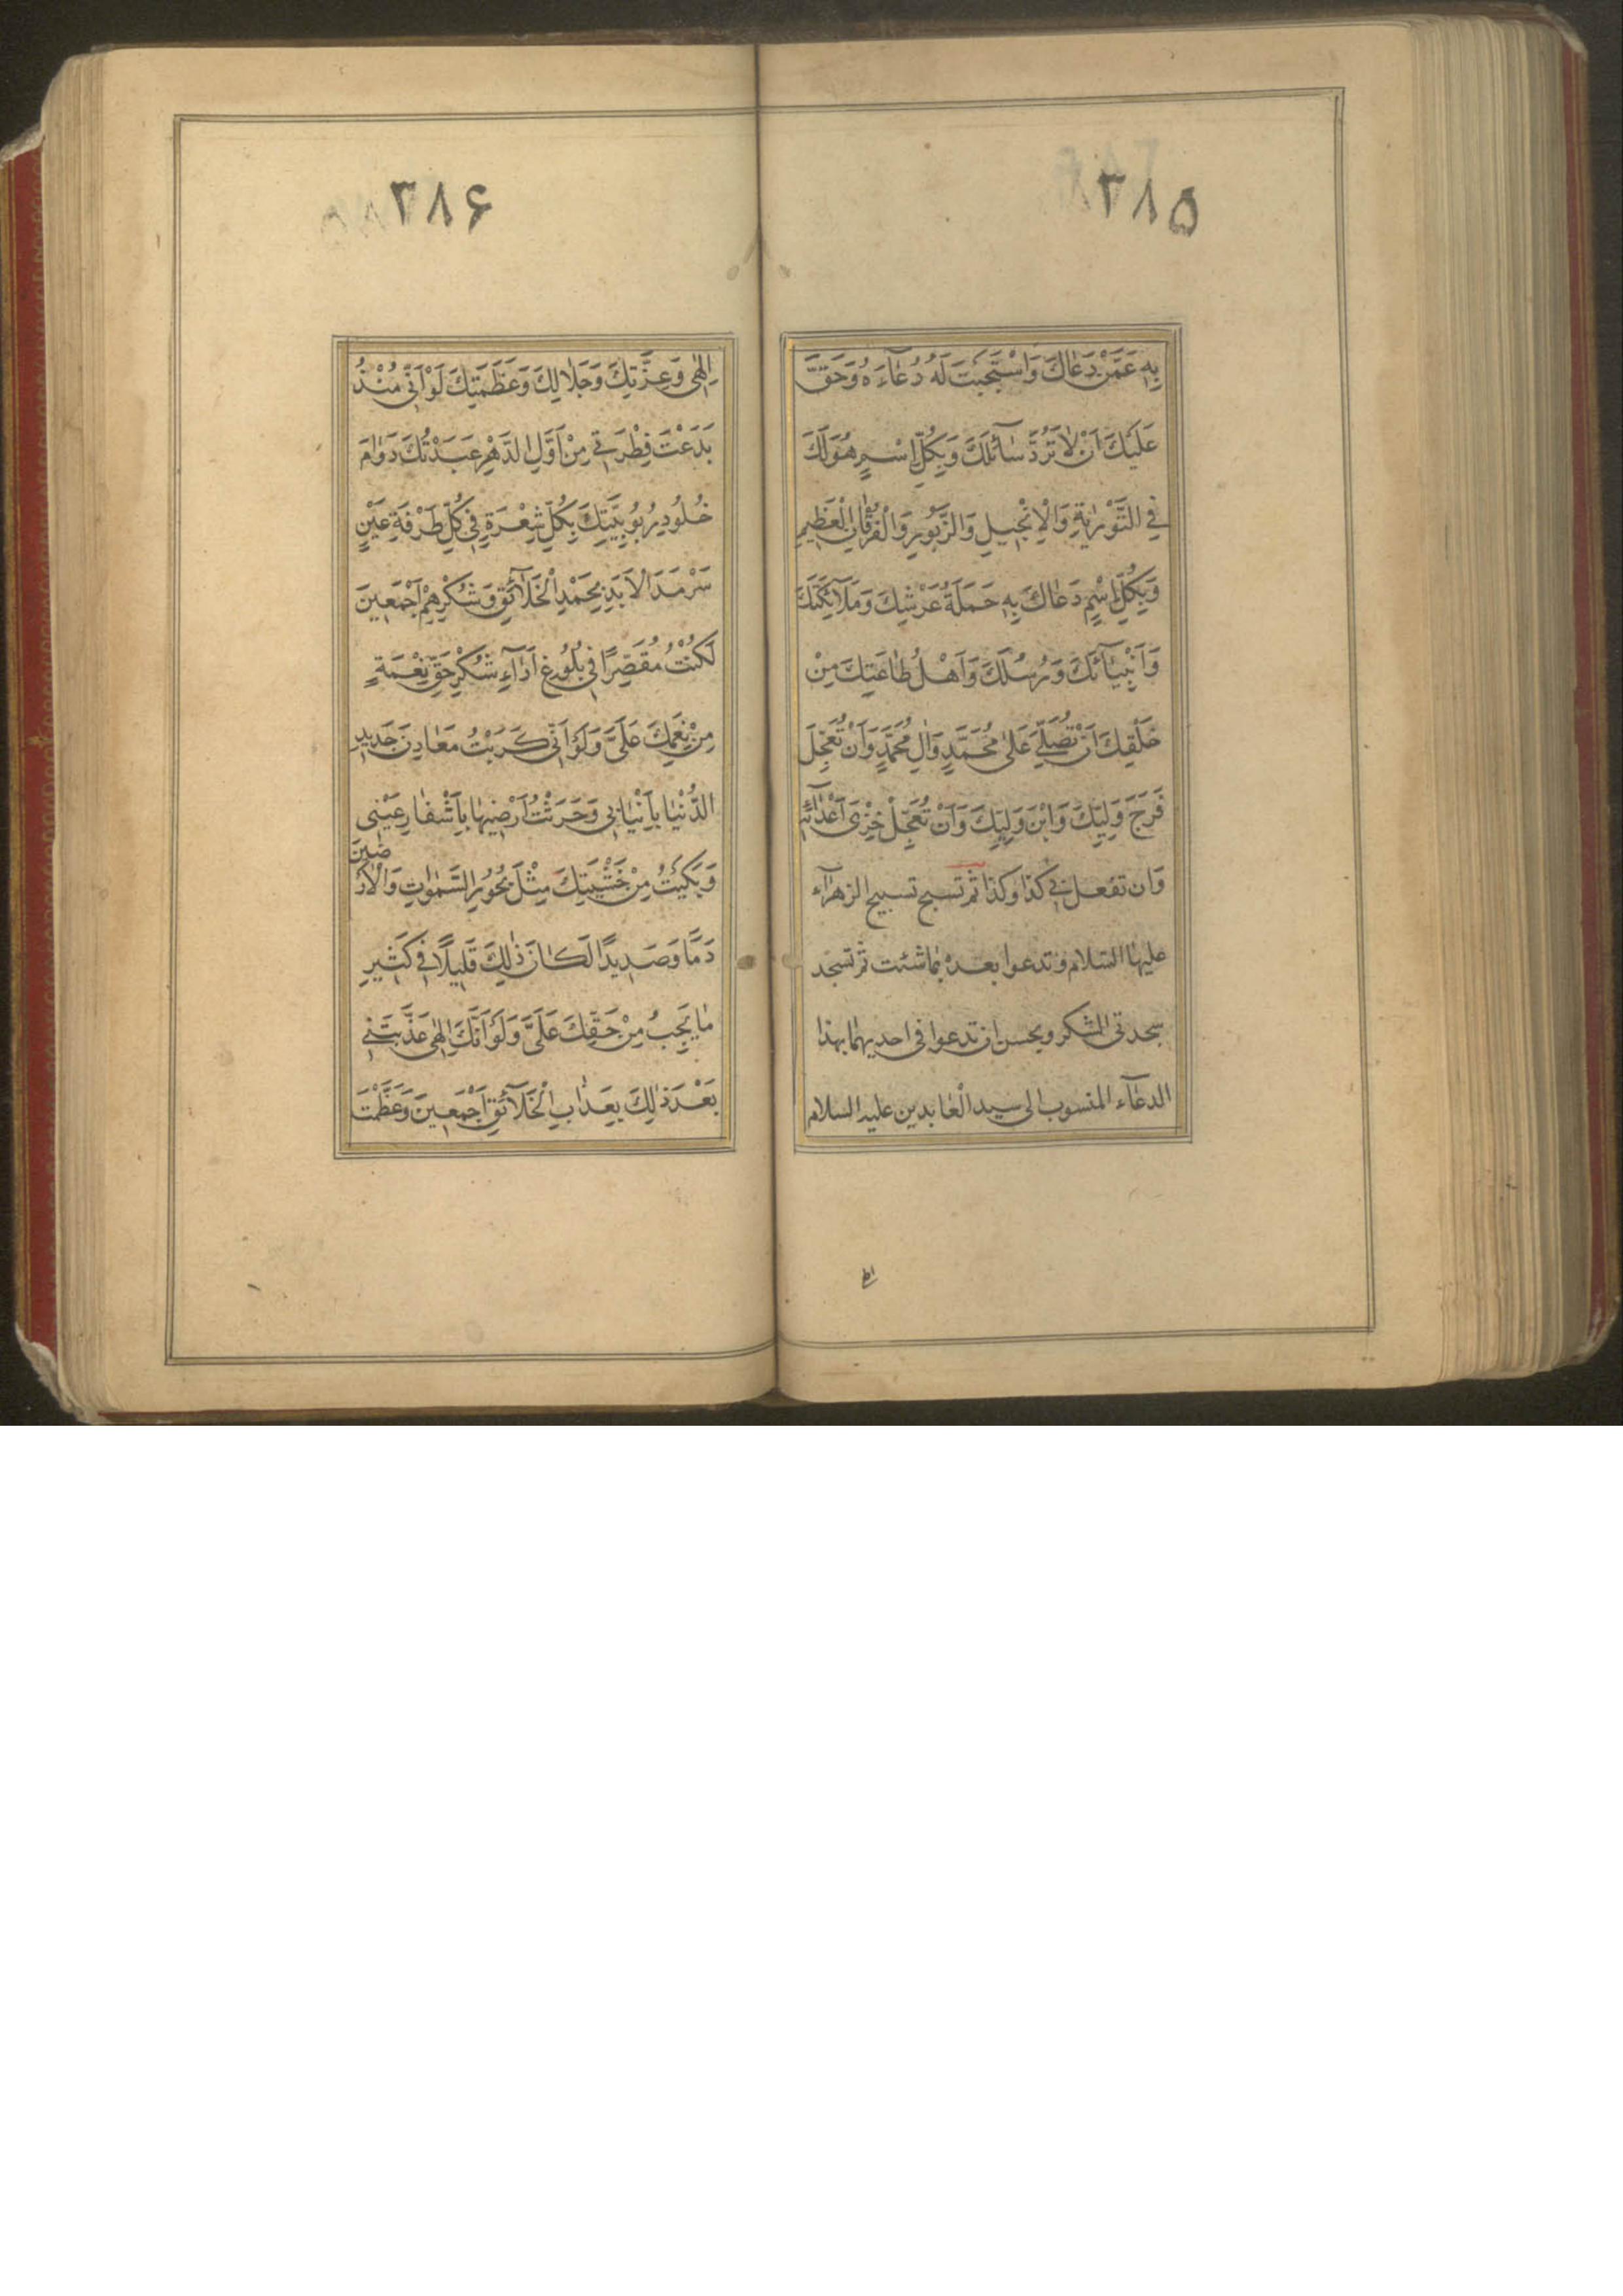 ۳۸۵
بِهِ عَمَّنْ دَعَاكَ وَاسْتَجَبْتَ لَهُ دُعَاءَهُ وَحَقَّ
عَلَيْكَ اَنْ لَا تَرُدَّ سَآئِلَكَ وَبِكُلِّ اسْمٍ هُوَ لَكَ
فِي التَّوْرٰيةِ وَالْاِنْجِيلِ وَالزَّبُورِ وَالْفُرْقَانِ الْعَظِيمِ
وَبِكُلِّ اسْمٍ دَعَاكَ بِهِ حَمَلَةُ عَرْشِكَ وَمَلَآئِكَتُكَ
وَاَنْبِيَآئُكَ وَرُسُلُكَ وَاَهْلُ طَاعَتِكَ مِنْ
خَلْقِكَ اَنْ تُصَلِّيَ عَلٰى مُحَمَّدٍ وَاٰلِ مُحَمَّدٍ وَاَنْ تُعَجِّلَ
فَرَجَ وَلِيِّكَ وَابْنِ وَلِيِّكَ وَاَنْ تُعَجِّلَ خِزْىَ اَعْدَآئِهِ
وَان تفعل بي كذا وكذا ثم تسبح تسبيح الزهرآء
عليها السلام وتدعوا بعده بما شئت ثم تسجد
سجدتي الشكر ويحسن ان تدعوا في احديهما بهذا
الدعآء المنسوب الى سيد العابدين عليه السلام
اله
۳۸۶
اِلٰهِى وَعِزَّتِكَ وَجَلَالِكَ وَعَظَمَتِكَ لَوْ اَنِّى مُنْذُ
بَدَعْتَ فِطْرَتِي مِنْ اَوَّلِ الدَّهْرِ عَبَدْتُكَ دَوَامَ
خُلُودِ رُبُوبِيَّتِكَ بِكُلِّ شَعْرَةٍ فِي كُلِّ طَرْفَةِ عَيْنٍ
سَرْمَدَ الْاَبَدِ بِحَمْدِ الْخَلَآئِقِ وَشُكْرِهِمْ اَجْمَعِينَ
لَكُنْتُ مُقَصِّرًا فِي بُلُوغِ اَدَآءِ شُكْرِ حَقِّ نِعْمَةٍ
مِنْ نِعَمِكَ عَلَىَّ وَلَوْ اَنِّى كَرَبْتُ مَعَادِنَ حَدِيدِ
الدُّنْيَا بِاَنْيَابِي وَحَرَثْتُ اَرْضِيهَا بِاَشْفَارِ عَيْنِى
وَبَكَيْتُ مِنْ خَشْيَتِكَ مِثْلَ بُحُورِ السَّمٰوَاتِ وَالْاَرَ
ضِينَ
دَمًا وَصَدِيدًا لَكَانَ ذٰلِكَ قَلِيلًا فِي كَثِيرِ
مَا يَجِبُ مِنْ حَقِّكَ عَلَىَّ وَلَوْ اَنَّكَ اِلٰهِى عَذَّبْتَنِي
بَعْدَ ذٰلِكَ بِعَذَابِ الْخَلَآئِقِ اَجْمَعِينَ وَعَظَّمْتَ